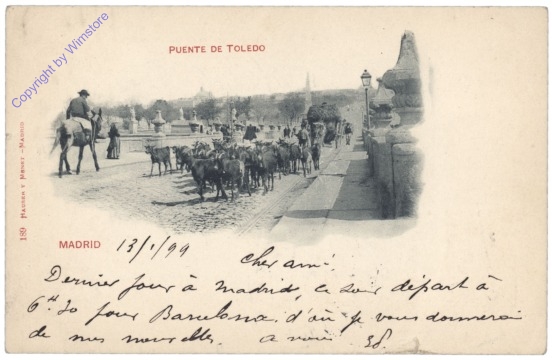 Copyright by Wimstore
PUENTE DE TOLEDO
189 HAUSER Y MENET.-MADRID
MADRID
13/1/99
Cher ami
Dernier jour à Madrid, ce soir départ à
6h 30 pour Barcelona d'où je vous donnerai
de mes nouvelles.